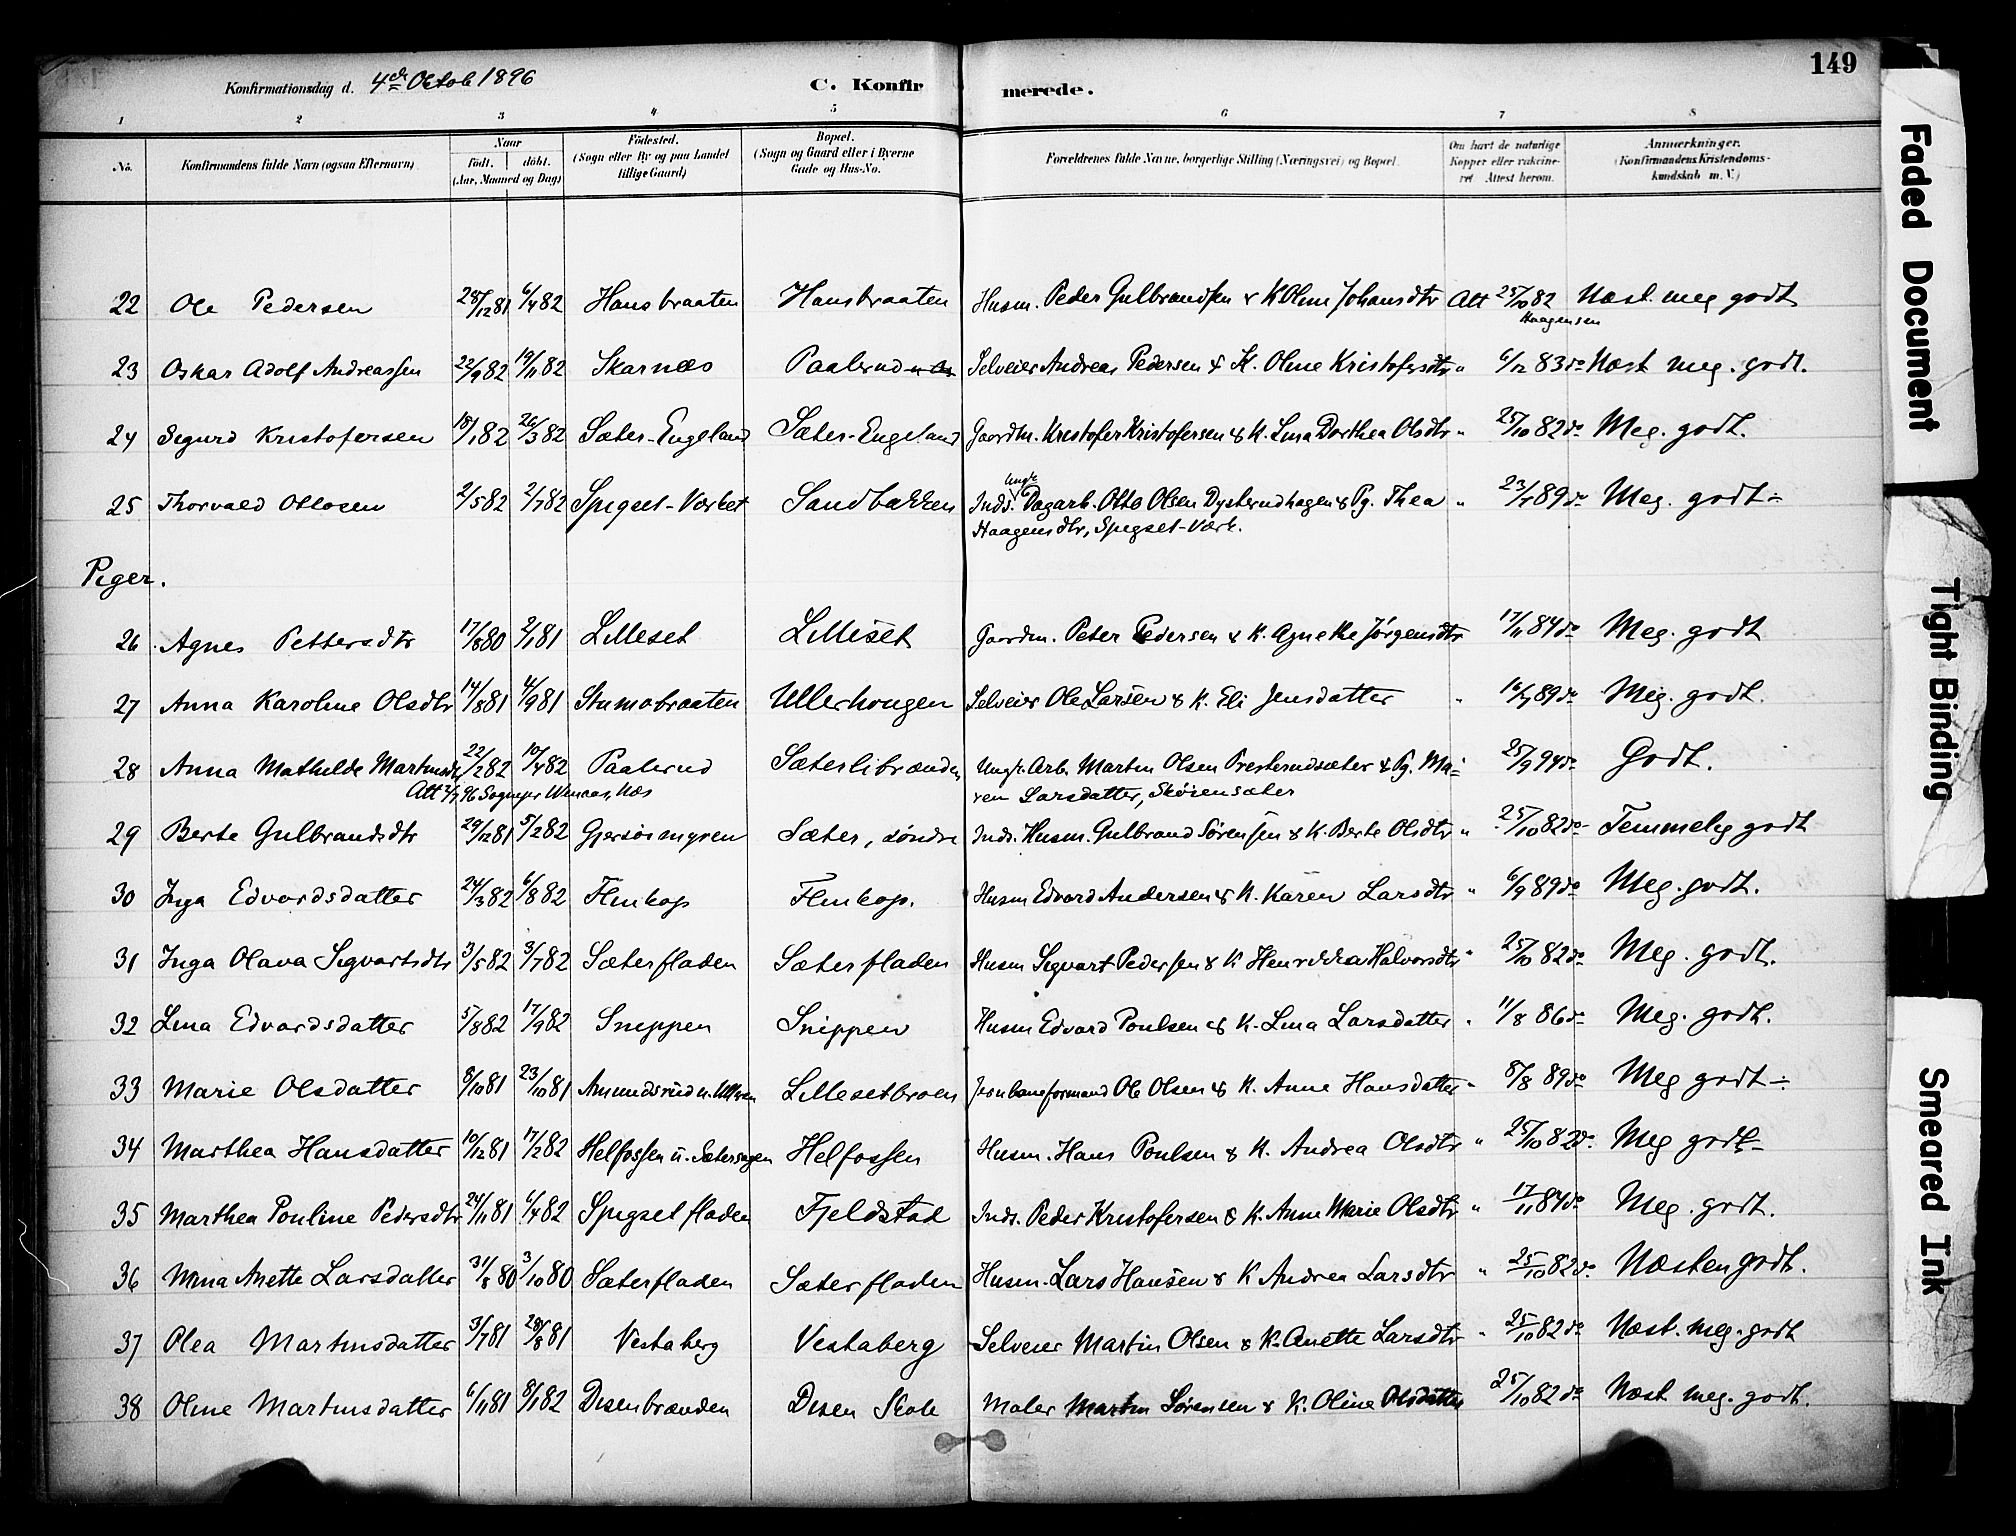 149
Konfirmationsdag d. 4de Octob 1896 C. Konfirmerede.
1 2 3 4 5 6 7 8
No. Konfirmandens fulde Navn (ogsaa Efternavn) Naar født. døbt. (Aar, Maaned og Dag) Fødested. (Sogn eller By og paa Landet tillige Gaard) Bopæl. (Sogn og Gaard eller i Byerne Gade og Hus-No. Forældrenes fulde Navne, borgerlige Stilling (Næringsvei) og Bopæl. Om havt de naturlige Kopper eller vaccineret Attest herom. Anmærkninger. (Konfirmandens Kristendomskundskab m. V.)
22 Ole Pedersen 28/12 81 6/4 82 Hansbraaten Hansbraaten Husm. Peder Gulbrandsen & K Oline Johansdtr Att 25/10 82 Næst meg godt
Haagensen
23 Oskar Adolf Andreassen 22/9 82 19/11 82 Skarnæs Paalerud Selveier Andreas Pedersen & K. Oline Kristofersdtr " 6/12 83 do Næst meg. godt.
24 Sigurd Kristofersen 18/1 82 26/3 82 Sæter-Engeland Sæter-Engeland Gaardm. Kristofer Kristofersen & K. Lina Dorthea Olsdtr " 25/10 82 do Meg. godt.
25 Thorvald Ottosen 2/5 82 2/7 82 Spigset-Værket Sandbakken Inds. Ungk. Dagarb. Otto Olsen Dysterudhagen & Pg. Thea " 23/7 89 do Meg. godt
Haagensdtr, Spigset-Værk.
Piger.
26 Agnes Pettersdtr 17/8 80 2/1 81 Lilleset Lilleset Gaardm. Peter Pedersen & K. Agnethe Jørgensdtr 17/11 84 do Meg. godt
27 Anna Karoline Olsdtr 14/8 81 4/9 81 Stumobraaten Ullerhougen Selveier Ole Larsen & K. Eli Jensdatter " 16/7 89 do Meg. godt.
28 Anna Mathilde Martinsdtr 22/2 82 10/4 82 Paalerud Sæterlibrænden Ungk. Arb. Martin Olsen Presterudsæter & Pg. Ma-
Att 2/7 96 Sognepr Wincas, Næs ren Larsdatter, Skøiensæter 25/9 94 do Godt.
29 Berte Gulbrandsdtr 29/12 81 5/2 82 Gjersøimyren Sæter, søndre Inds. Husm. Gulbrand Sørensen & K. Berte Olsdtr " 25/10 82 do Temmelig godt
30 Inga Edvardsdatter 24/3 82 6/8 82 Flinkop Flinkop. Husm Edvard Andersen & K. Karen Larsdtr " 6/9 89 do Meg. godt.
31 Inga Olava Sigvartsdtr 3/5 82 3/7 82 Sæterfladen Sæterfladen Husm Sigvart Pedersen & K Henrikka Halvorsdtr " 25/10 82 do Meg. godt.
32 Lina Edvardsdatter 5/8 82 17/9 82 Snippen Snippen Husm Edvard Poulsen & K. Lina Larsdatter " 11/8 86 do Meg. godt.
33 Marie Olsdatter 8/10 81 23/10 81 Amundsrud u. Ullern Lillesetbroen Jernbaneformand Ole Olsen & K. Anne Hansdatter " 8/8 89 do Meg godt
34 Marthea Hansdatter 10/12 81 17/2 82 Helfossen u. Sætersagen Helfossen Husm. Hans Poulsen & K. Andrea Olsdtr " 25/10 82 do Meg godt
35 Marthea Pouline Pedersdtr 24/11 81 6/4 82 Spigsetfladen Fjeldstad Inds. Peder Kristofersen & K. Anne Marie Olsdtr " 17/11 84 do Meg. godt.
36 Nina Anette Larsdatter 31/8 80 3/10 80 Sæterfladen Sæterfladen Husm. Lars Hansen & K Andrea Larsdtr " 25/10 82 do Næsten godt.
37 Olea Martinsdatter 3/7 81 28/8 81 Vestaberg Vestaberg Selveier Martin Olsen & K. Anette Larsdtr " 25/10 82 do Næst. meg. godt
38 Oline Martinsdatter 6/11 81 8/1 82 Disenbrænden Disen Skole Maler Martin Sørensen & K. Oline Olsdatter 25/10 82 do Næst meg. godt.
Faded Document
Tight Binding
Smeared Ink